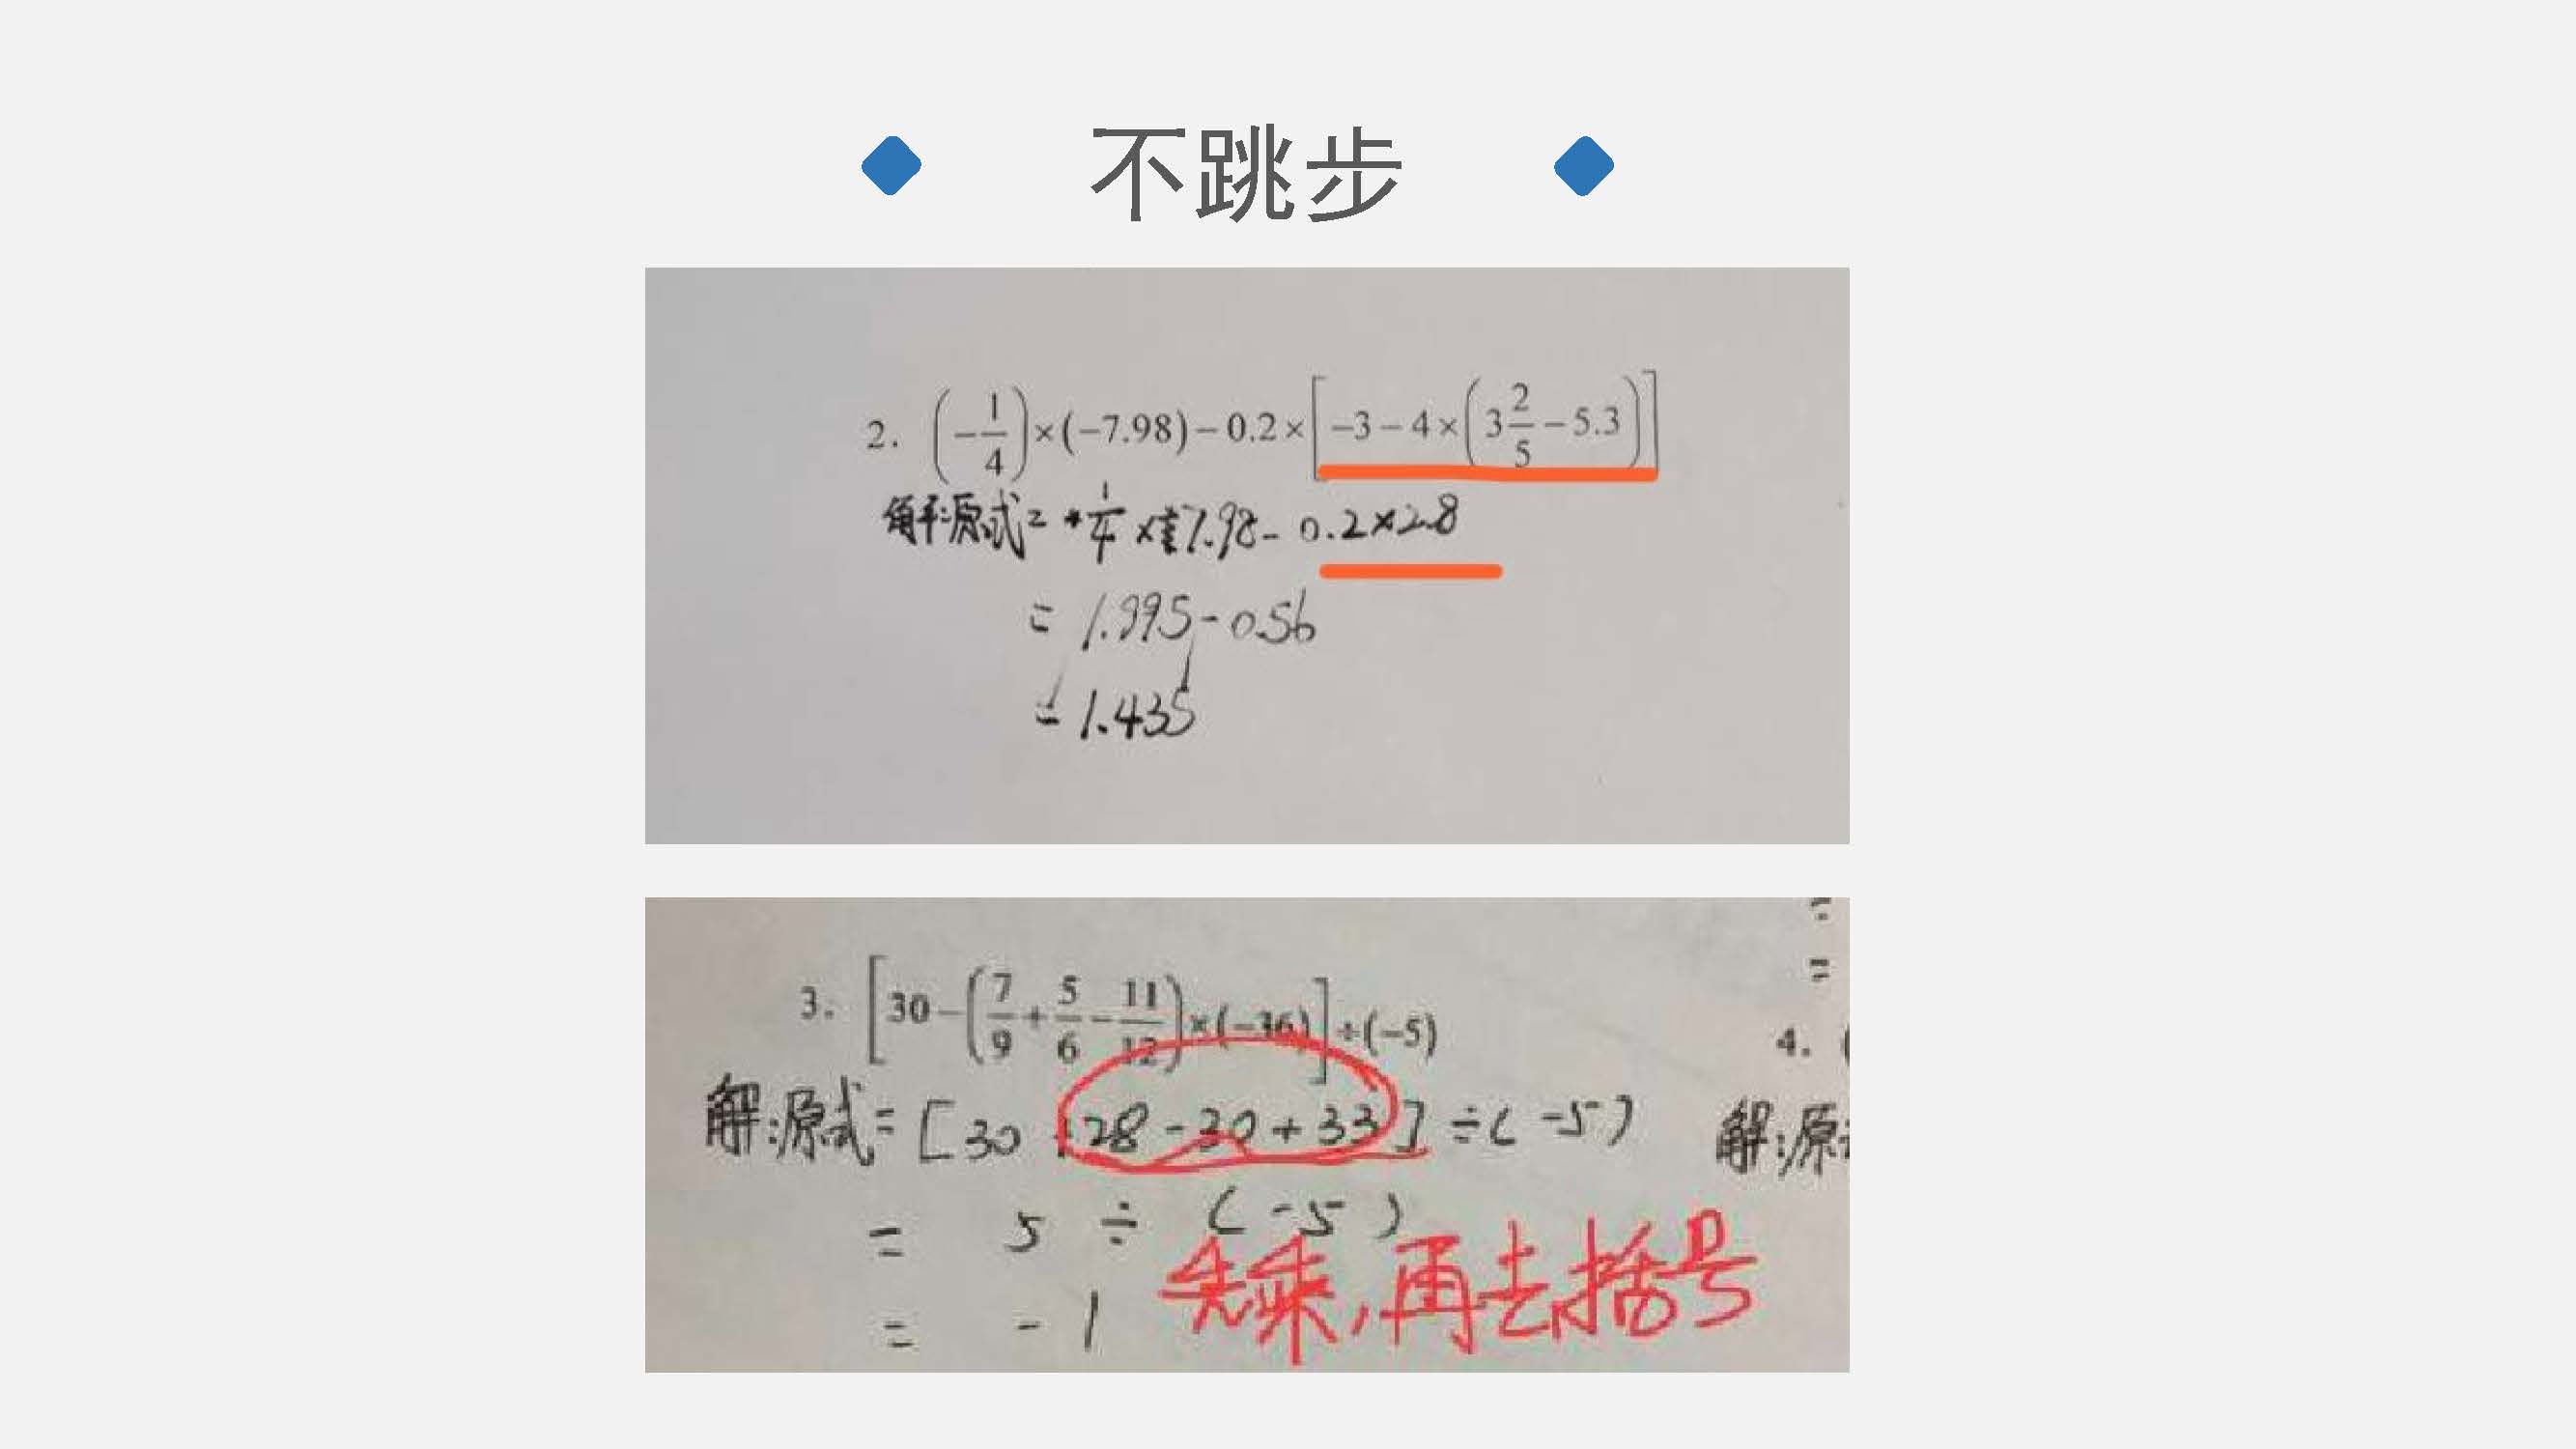 不跳步
2. (-1/4)×(-7.98)-0.2×[-3-4×(3 2/5-5.3)]
解:原式= +1/4×7.98-0.2×2.8
= 1.995-0.56
= 1.435
3. [30-(7/9+5/6-11/12)×(-36)]÷(-5)
解:原式=[30+28-30+33]÷(-5)
4. (
解:原
= 5÷(-5)
= -1
先乘,再去括号